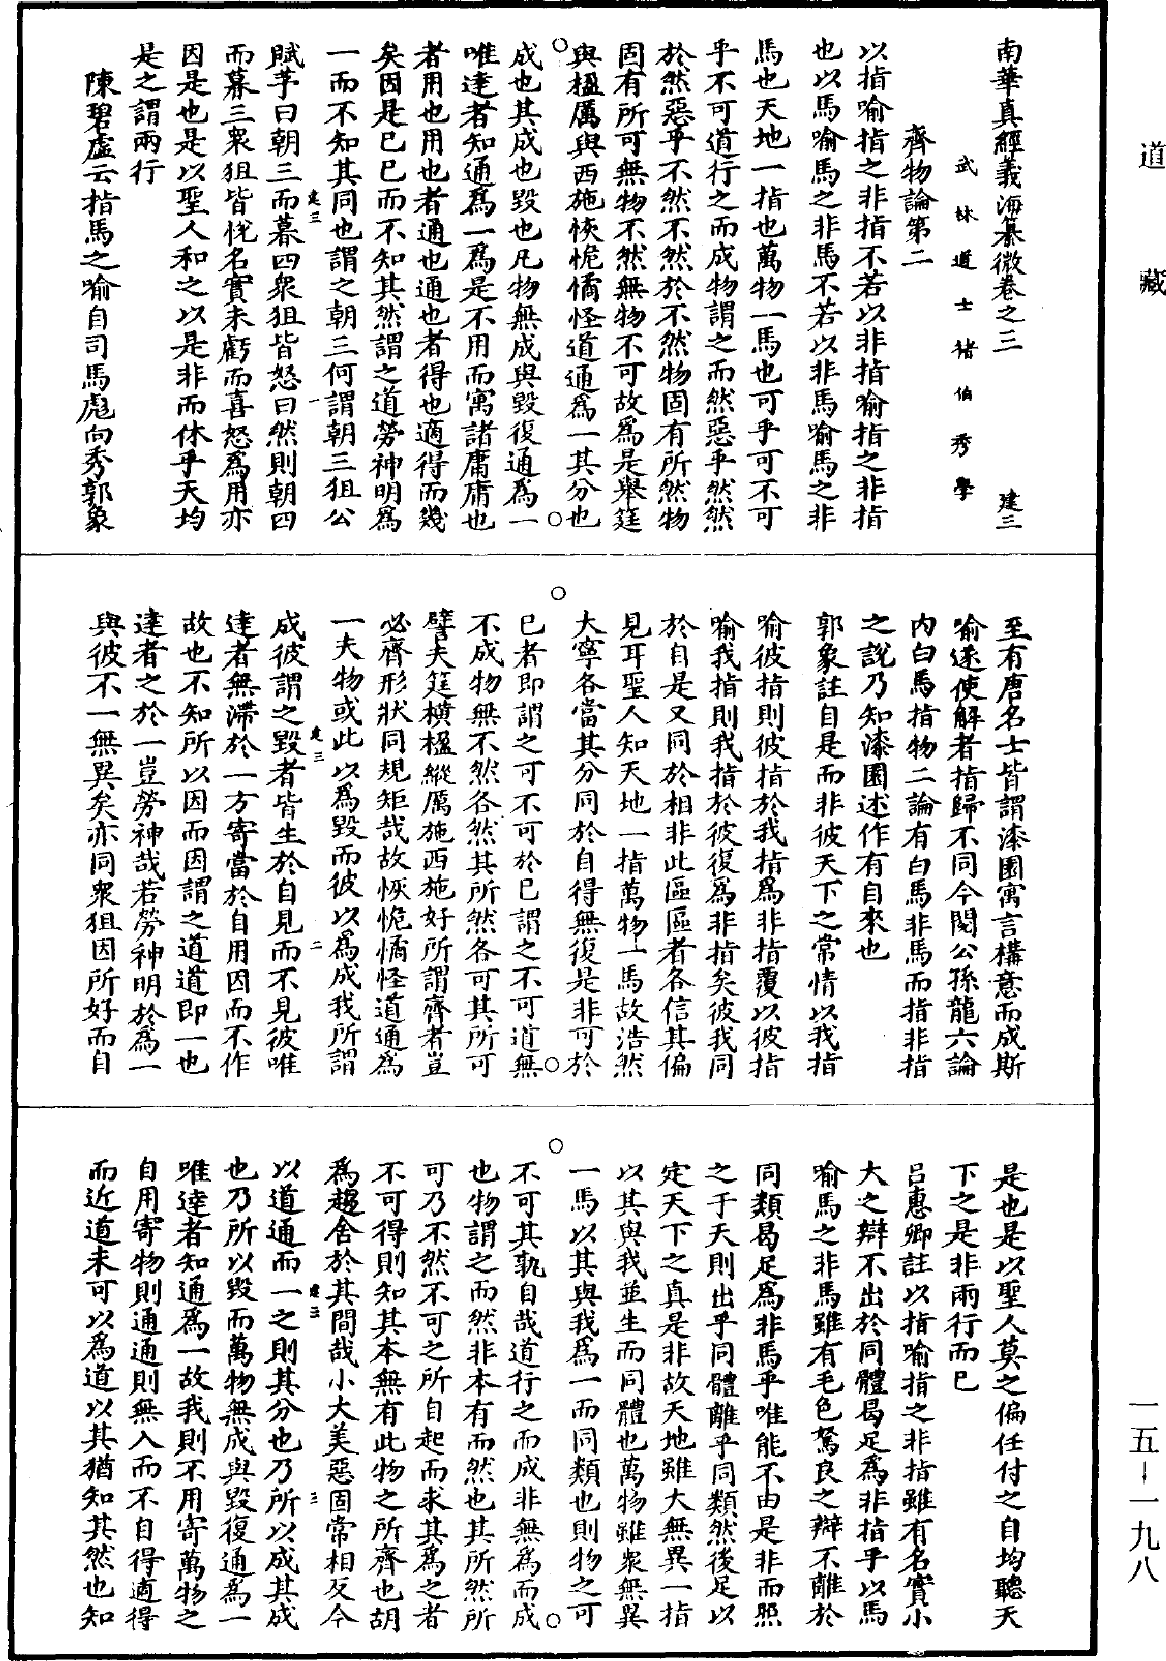 道藏
南華真經義海纂微卷之三　建三
武林道士褚伯秀學
齊物論第二
以指喻指之非指不若以非指喻指之非指
也以馬喻馬之非馬不若以非馬喻馬之非
馬也天地一指也萬物一馬也可乎可不可
乎不可道行之而成物謂之而然惡乎然然
於然惡乎不然不然於不然物固有所然物
固有所可無物不然無物不可故為是舉莛
與楹厲與西施恢恑憰怪道通為一其分也
成也其成也毀也凡物無成與毀復通為一
唯達者知通為一為是不用而寓諸庸庸也
者用也用也者通也通也者得也適得而幾
矣因是已已而不知其然謂之道勞神明為
一而不知其同也謂之朝三何謂朝三狙公
建三　一
賦芧曰朝三而暮四衆狙皆怒曰然則朝四
而暮三衆狙皆悅名實未虧而喜怒為用亦
因是也是以聖人和之以是非而休乎天均
是之謂兩行
陳碧虛云指馬之喻自司馬彪向秀郭象
至有唐名士皆謂漆園寓言構意而成斯
喻遂使解者指歸不同今閱公孫龍六論
内白馬指物二論有白馬非馬而指非指
之說乃知漆園述作有自來也
郭象註自是而非彼天下之常情以我指
喻彼指則彼指於我指為非指覆以彼指
喻我指則我指於彼復為非指矣彼我同
於自是又同於相非此區區者各信其偏
見耳聖人知天地一指萬物一馬故浩然
大寧各當其分同於自得無復是非可於
已者即謂之可不可於已謂之不可道無
不成物無不然各然其所然各可其所可
譬夫莛橫楹縱厲施西施好所謂齊者豈
必齊形狀同規矩哉故恢恑憰怪道通為
一夫物或此以為毀而彼以為成我所謂
建三　二
成彼謂之毀者皆生於自見而不見彼唯
達者無滯於一方寄當於自用因而不作
故也不知所以因而因謂之道道即一也
達者之於一豈勞神哉若勞神明於為一
與彼不一無異矣亦同衆狙因所好而自
是也是以聖人莫之偏任付之自均聽天
下之是非兩行而已
吕惠卿註以指喻指之非指雖有名實小
大之辯不出於同體曷足為非指乎以馬
喻馬之非馬雖有毛色駑良之辯不離於
同類曷足為非馬乎唯能不由是非而照
之于天則出乎同體離乎同類然後足以
定天下之真是非故天地雖大無異一指
以其與我並生而同體也萬物雖衆無異
一馬以其與我為一而同類也則物之可
不可其孰自哉道行之而成非無為而成
也物謂之而然非本有而然也其所然所
可乃不然不可之所自起而求其為之者
不可得則知其本無有此物之所齊也胡
為趨舍於其間哉小大美惡固常相反今
建三　三
以道通而一之則其分也乃所以成其成
也乃所以毀而萬物無成與毀復通為一
唯達者知通為一故我則不用寄萬物之
自用寄物則通通則無入而不自得適得
而近道未可以為道以其猶知其然也知
一五—一九八